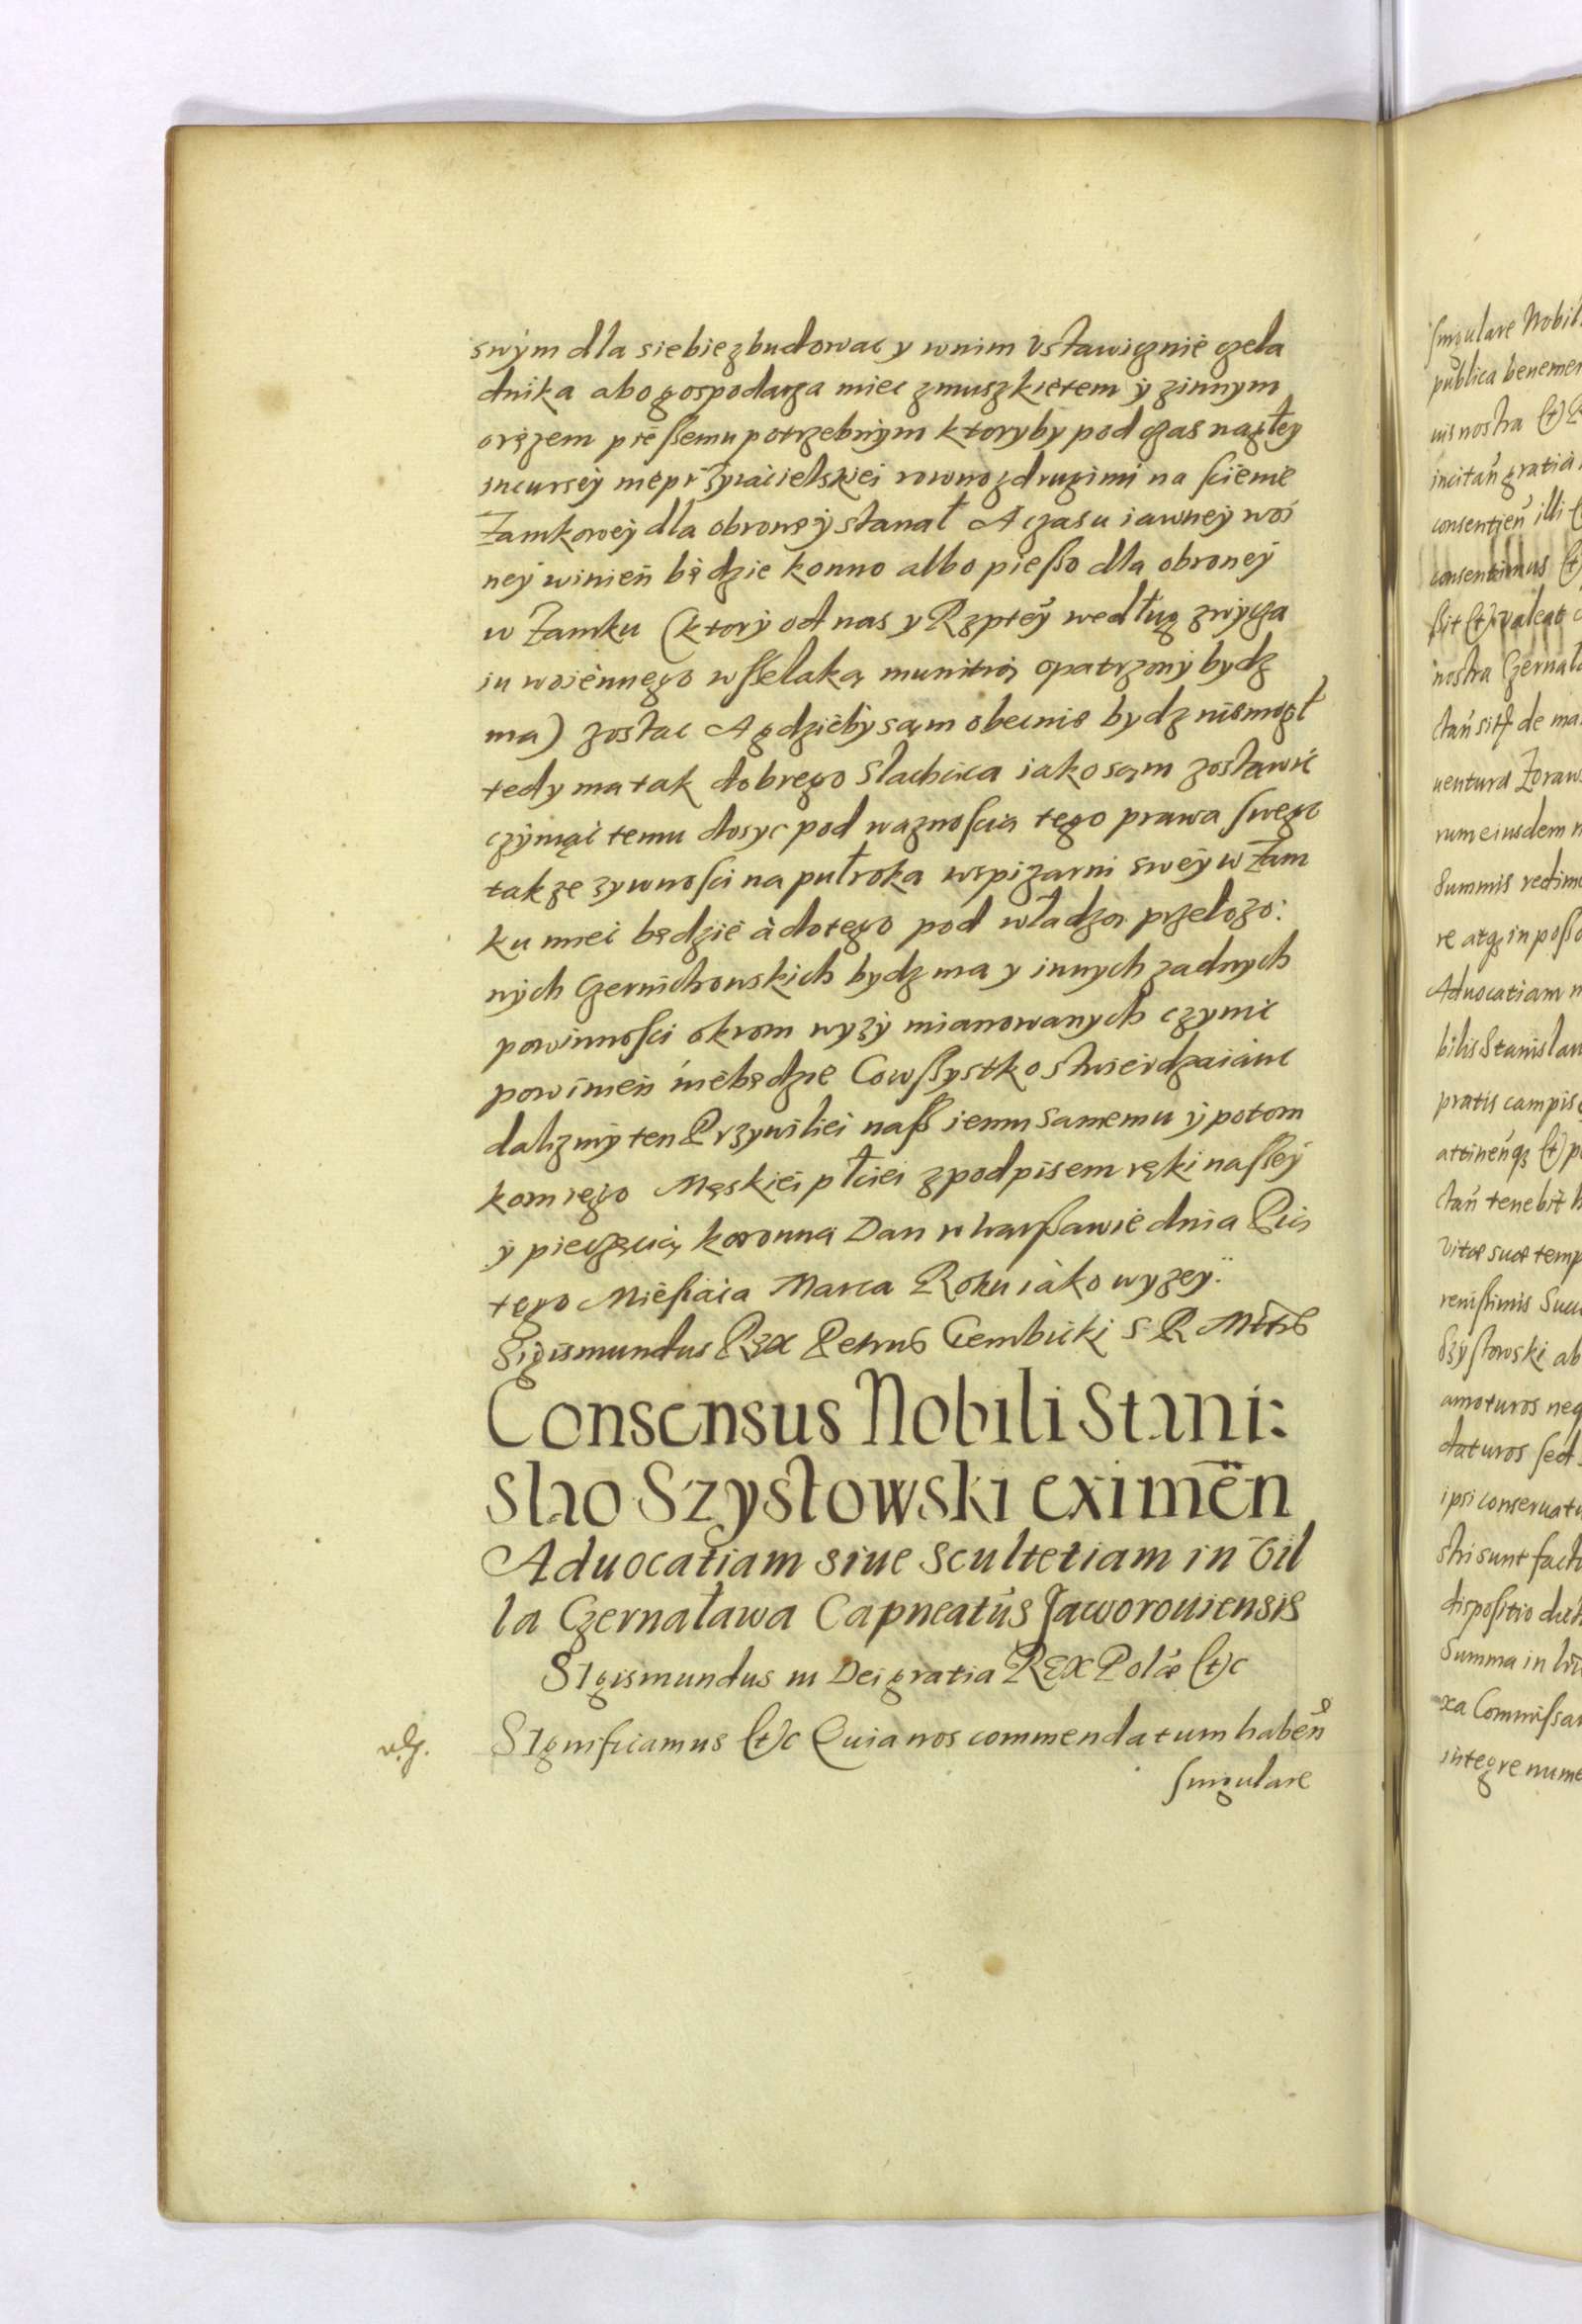 swym dla siebie zbudowac y wnim Vstawicznie czela
dnika abo gospodarza miec zmuszkietem y zinnym
orężem pießemu potrzebnym ktoryby pod czas nagłey
incursey nieprzyiacielskiei rowno zdrugimi na scienie
Zamkowey dla obrony stanał A czasu iawney woi
ney winien będzie konno albo pießo dla obroney
w Zamku (ktory od nas y Rzptey według zwycza
iu woiennego wßelaką munitią opatrzony bydz
ma) zostac A gdzieby sąm obecnie bydz niemogł
tedy ma tak dobrego Slachcica iako sąm zostawic
czyniąc temu dosyc pod waznoscią tego prawa swego
takze zywnosci na pułroka wspizarni swey w Zam
ku miec będzie à dotego pod władzą przełozo:
nych Czernichowskich bydz ma y innych zadnych
powinnosci okrom wyzy mianowanych czynic
powinien niebędzie Cowßystko stwierdzaiąc
dalizmy ten Przywiliei naß iemu samemu y potom
kom iego Męskiei płciei zpodpisem ręki naßey
y pieczęcią koronną Dan w Warßawie dnia Pią
tego Miesiąca Marca Roku iàko wyzey.
Sigismundus Rex Petrus Gembicki S R Mttis
Consensus Nobili Stani:
slao Szysłowski eximēn
Aduocatiam siue Scultetiam in Vil
la Czernaława Capneatus Jaworouiensis
SIgismundus III Dei gratia REX Polæ (t)c
SIgnificamus (t)c Quia nos commendatum habeñ
singulare
singulare Nobil
publica benemer
nostra (t)
incitañ gratia
consentien illi
consentimus (t)
ßit (t) valeat
nostra Czernała
de ma
uentura Zoraw
rum eiusdem
Summis redim
re atq in poßo
Aduocatiam n
bilis Stanislau
pratis campis
attineñ (t) p
tenebit h
Vitæ suæ temp
renißimis Suc
Szysłowski ab
amoturos neq
daturos sed
ipsi conseruatu
stri sunt factu
dispositio
Summa in
xa Commißar
integre nume